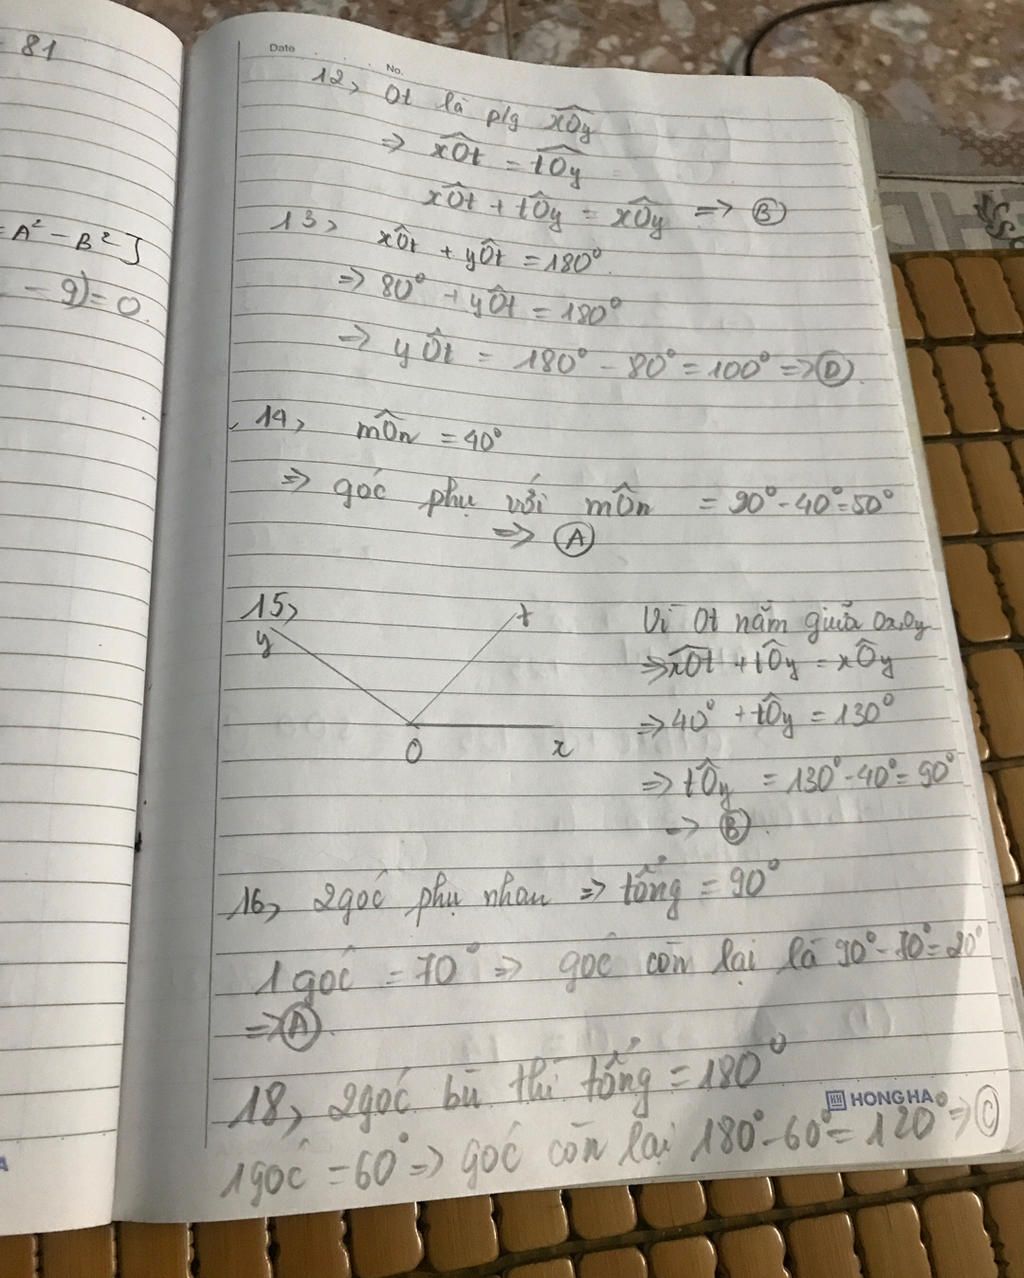 81
= A² - B²]
- 9) = 0.
Date
No.
12, Ot là p/g xÔy
=> xÔt = tÔy
xÔt + tÔy = xÔy => B
13, xÔt + yÔt = 180°.
=> 80° + yÔt = 180°
=> yÔt = 180° - 80° = 100° => D
14, mÔn = 40°
=> góc phụ với mÔn = 90° - 40° = 50°
=> A
15,
y
t
O
x
Vì Ot nằm giữa Ox, Oy
=> xÔt + tÔy = xÔy
=> 40° + tÔy = 130°
=> tÔy = 130° - 40° = 90°
=> B.
16, 2 góc phụ nhau => tổng = 90°
1 góc = 70° => góc còn lại là 90° - 70° = 20°
=> A.
18, 2 góc bù thì tổng = 180°
HONG HA
1 góc = 60° => góc còn lại 180° - 60° = 120° => C
A